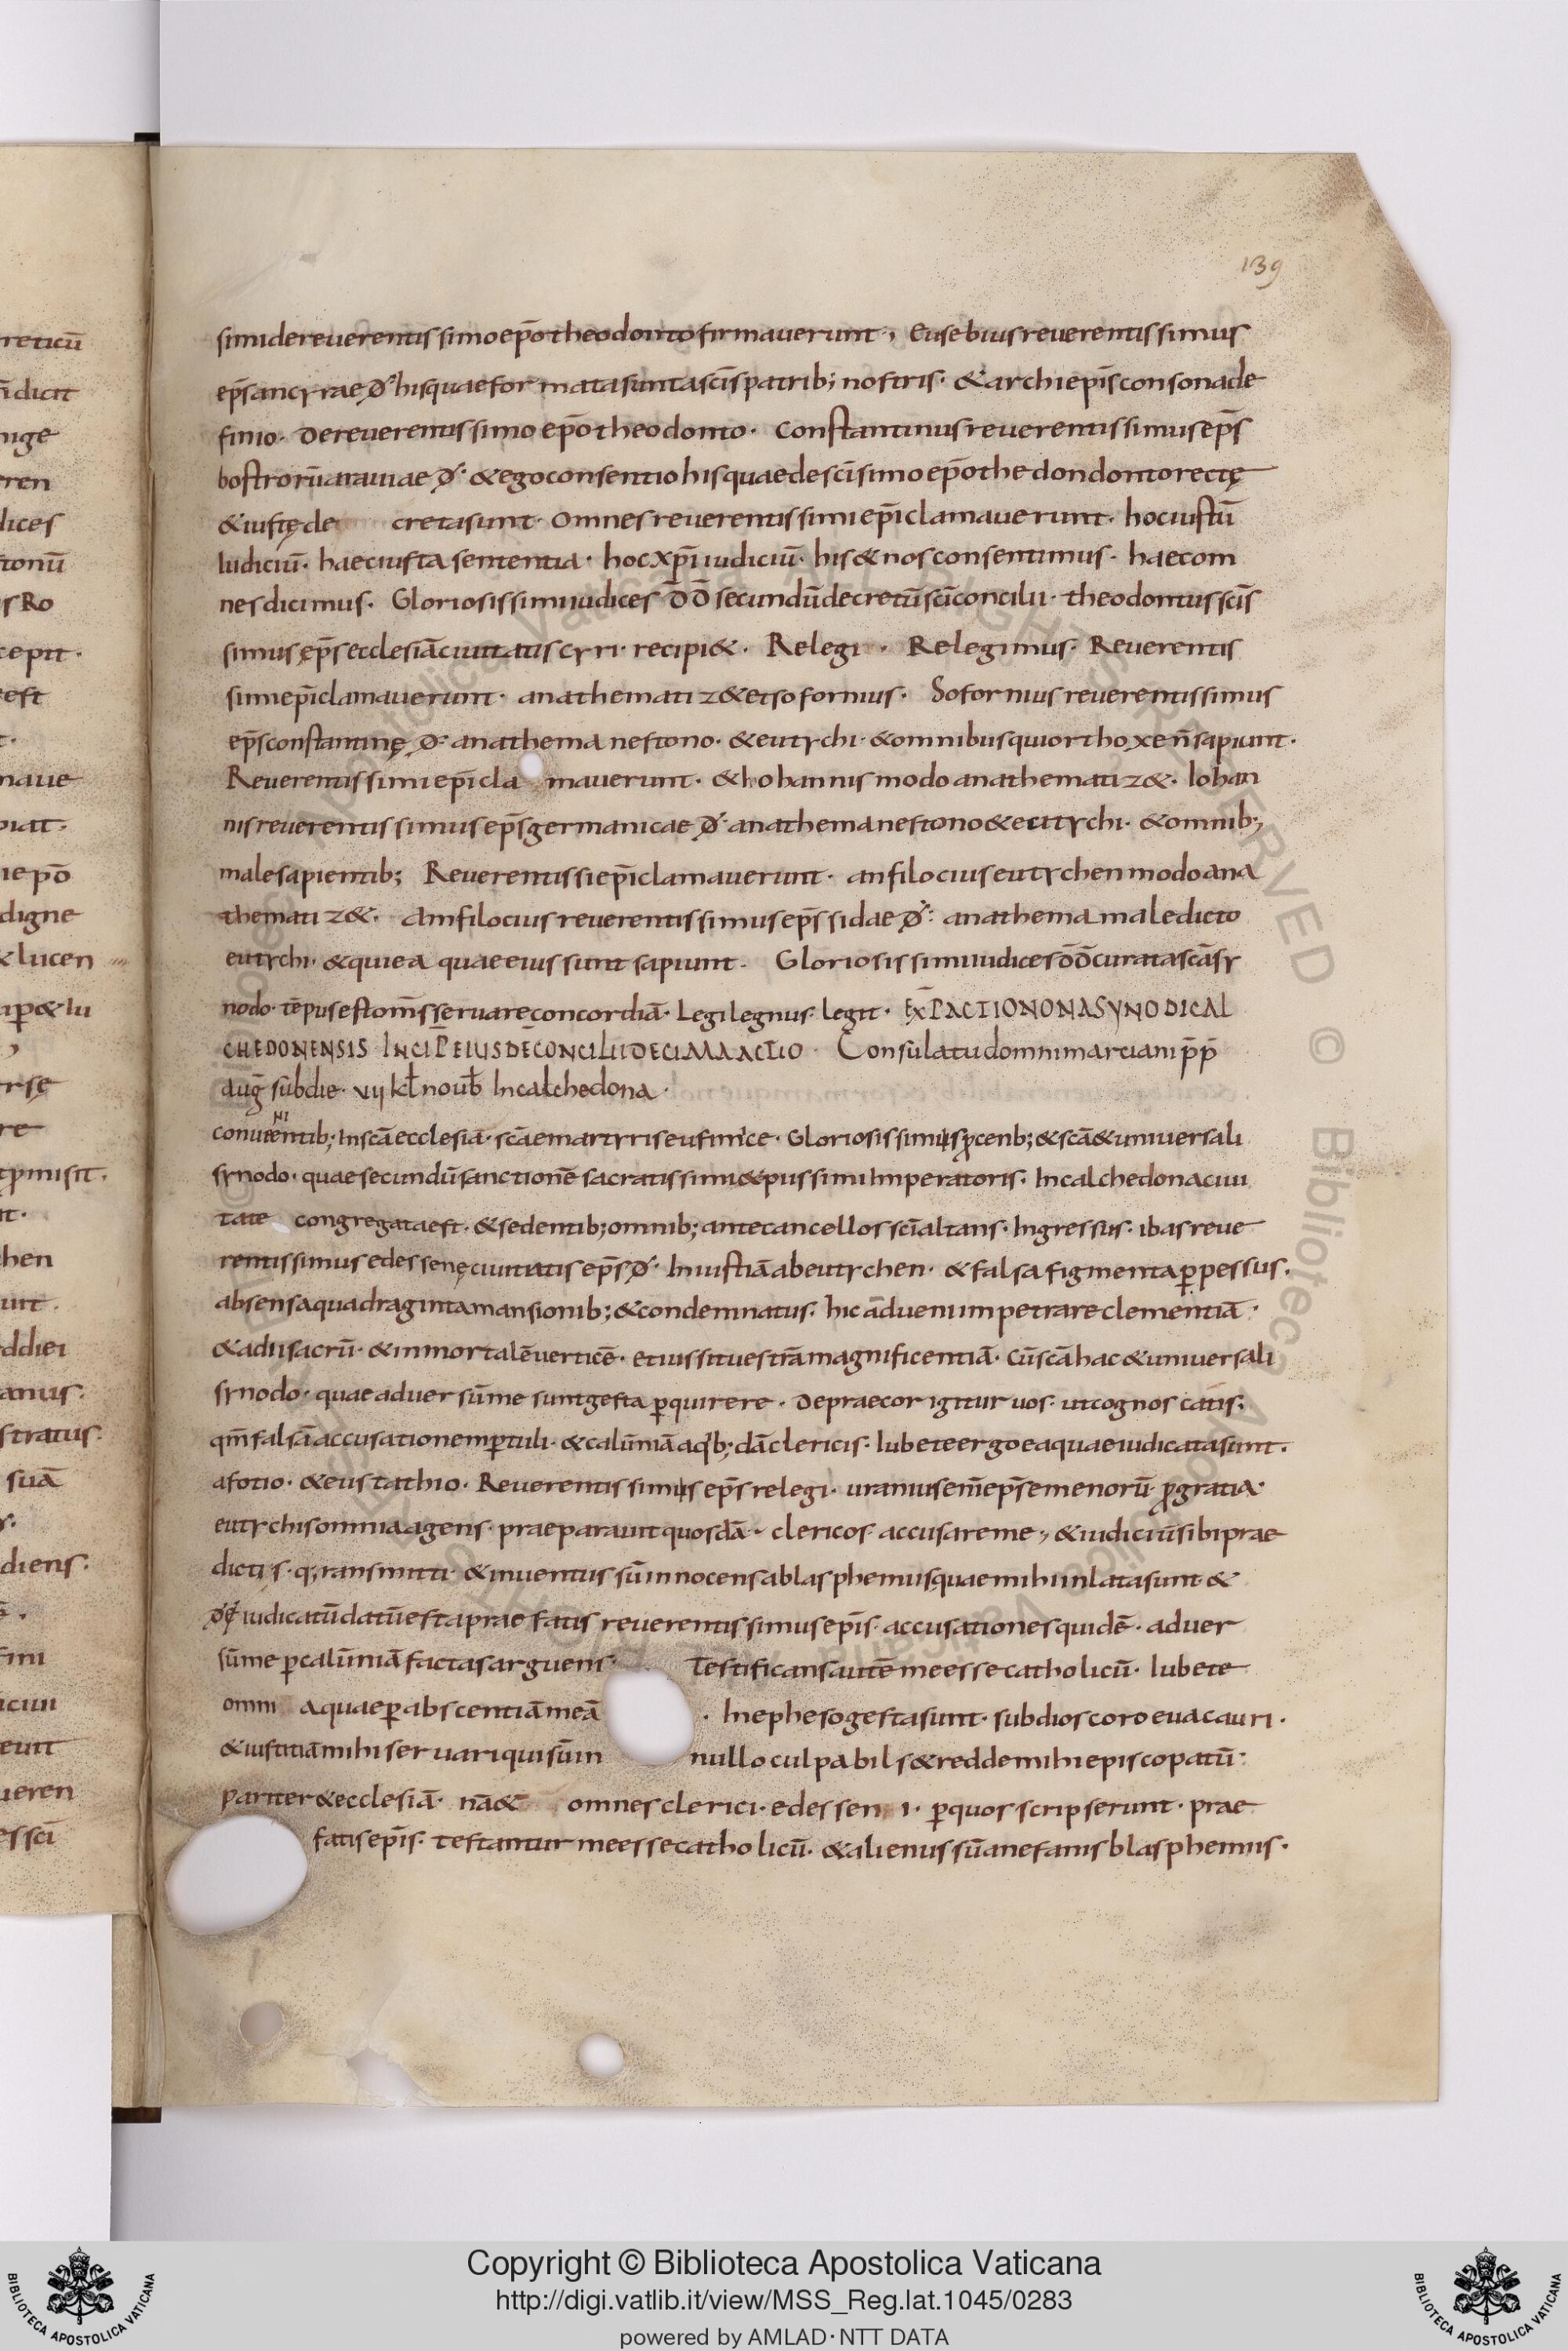 139
simide reuerentissimo ep̄o theodorito firmauerunt, Eusebius reuerentissimus
ep̄s ancyrae đ his quae formata sunt a sc̄is patrib; nostris · & archiep̄is consona de
finio · de reuerentissimo ep̄o theodorito · Constantinus reuerentissimus ep̄s
bostrorū arauiae đ · & ego consentio his quae de sc̄isimo ep̄o thedondorito rectę
& iustę de cretasunt · Omnes reuerentissimi ep̄i clamauerunt · hoc iustū
Iudiciū · haec iusta sententia · hoc xp̄i iudiciū · his & nos consentimus · haec om
nes dicimus · Gloriosissimi iudices d̄d̄ secundū decretū sc̄i concilii · theodoritus sc̄is
simus ep̄s ecclesiā ciuitatis cyri · recipi& · Relegi · Relegimus · Reuerentis
simi ep̄i clamauerunt · anathematiz& et sofornius · Sofornius reuerentissimus
ep̄s constantinę đ · anathema nestorio · & eutychi · & omnibus qui orthoxe n̄ sapiunt ·
Reuerentissimi ep̄i cla mauerunt · & Iohannis modo anathematiz& · Iohan
nis reuerentissimus ep̄s germanicae đ · anathema nestorio & eutychi · & omnib;
male sapientib; Reuerentissi ep̄i clamauerunt · anfilocius eutychen modo ana
thematiz& · Amfilocius reuerentissimus ep̄s sidae đ · anathema maledicto
eutychi · & qui ea quae eius sunt sapiunt · Gloriosissimi iudices d̄d̄ curata sc̄a sy
nodo · tēpus est om̄s seruare concordiā · Legi legnus legit · EXP̄ ACTIO NONA SYNODI CAL
CHEDONENSIS INCIP̄ EIUSDĒ CONCILII DECIMA ACTIO · Consulatu domni marciani p̄p̄
aug̅ subdie · vii kł nouƀ In calchedona ·
conueniẽntib; In sc̄a ecclesia · sc̄ae martyris eufimice · Gloriosissimis ꝓcerib; & sc̄a & uniuersali
synodo · quae secundū sanctionē sacratissimi & piissimi Imperatoris · In calchedona ciui
tate congregata est · & sedentib; omnib; ante cancellos sc̄i altaris · Ingressus · ibas reue
rentissimus edessenę ciuitatis ep̄s đ · Iniustiā ab eutychen · & falsa figmenta ꝑpessus ·
absens a quadraginta mansionib; & condemnatus · hic adueni impetrare clementiā ·
& adii sacrū · & inmortalē verticē · et iussit uestrā magnificentiā · cū sc̄a hac & uniuersali
synodo · quae aduersūme sunt gesta ꝑquirere · depraecor igitur uos · ut cognoscatis;
qm̄ falsā accusationem ꝑtuli · & calūniā a q'b; dā clericis · Iubete ergo ea quae iudicata sunt ·
a fotio · & eustathio · Reuerentissimis ep̄s relegi · uranius eni̅ ep̄s emenorū ꝓ gratia ·
eutychis omnia agens · praeparauit quosdā · clericos accusare me, & iudiciū sibi prae
dictis · q; transmitti · & inuentus sū innocens a blasphemiis quae mihi inlata sunt &
iudicatū datū est a praefatis reuerentissimus ep̄is · accusationes quidē · aduer
sūme ꝑ calūniā factas arguens · Testificans autē me esse catholicū · Iubete
omni a quae ꝑ abscentiā meā · In epheso gesta sunt · sub dioscoro euacuari ·
& iustitiā mihi seruari qui sūm nullo culpabilis & redde mihi episcopatū ·
pariter & ecclesiā · nā & omnes clerici · edessen i · ꝑ quos scripserunt · prae
fatis ep̄is · testantur me esse catholicū · & alienus sū a nefariis blasphemiis ·
Copyright © Biblioteca Apostolica Vaticana
http://digi.vatlib.it/view/MSS_Reg.lat.1045/0283
powered by AMLAD·NTT DATA